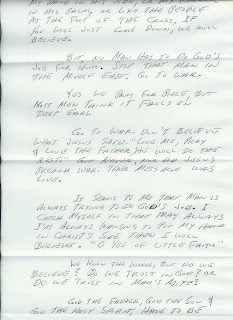 MY HAND IN HIS SIDE, OR
IN HIS PALM, OR LIKE THE PEOPLE
AT THE FOOT OF THE CROSS, IF
YOU WILL JUST COME DOWN, WE WILL
BELIEVE.
BUT NO MAN HAS TO DO GOD'S
JOB FOR HIM. STOP THAT MAN IN
THE MIDDLE EAST, GO TO WAR.
YES WE PRAY FOR PEACE, BUT
MOST MEN THINK IT FALLS ON
DEEF EARS.
GO TO WAR. DON'T BELIEVE
WHAT JESUS SAID: "LOVE ME, PRAY
& LOVE THE FATHER, HE WILL DO THE
REST" GOD NEVER, NOR DID JESUS
PREACH WAR. THEIR MESSAGE WAS
LOVE.
IT SEAMS TO ME THAT MAN IS
ALWAYS TRYING TO DO GOD'S JOB. I
CATCH MYSELF IN THAT PRAY ALWAYS
I'M ALWAYS WANTING TO PUT MY HAND
IN CHRIST'S SIDE THEN I WILL
BELIEVE. "O YEE OF LITTLE FAITH"
WE KNOW THE WORDS, BUT DO WE
BELIEVE? DO WE TRUST IN GOD? OR
DO WE TRUST IN MAN'S
GOD THE FATHER, GOD THE SON &
GOD THE HOLY SPIRIT, HAVE TO BE